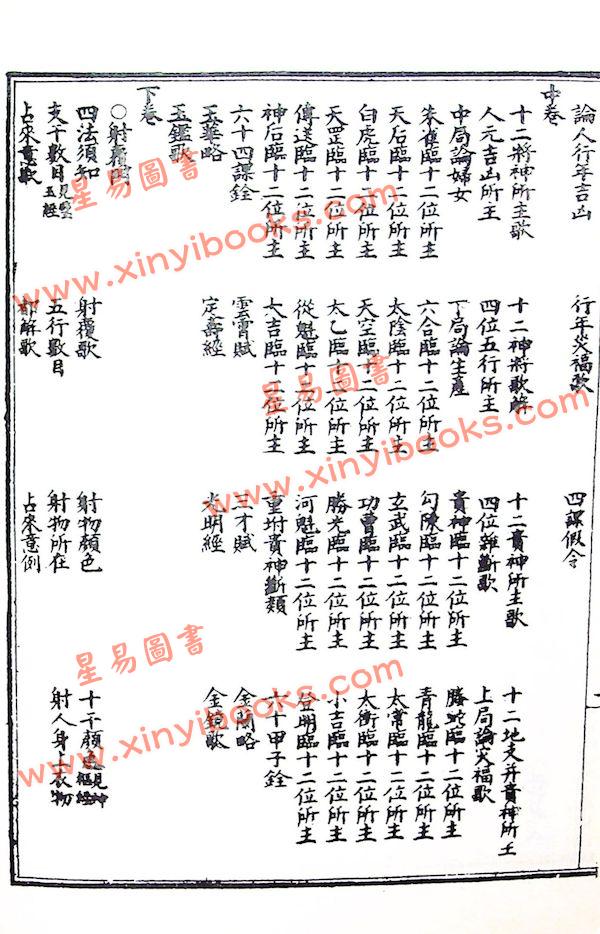 論人行年吉凶 行年災福歌 四課假令
中卷
十二將神所主歌 十二神將歌解 十二貴神所主歌 十二地支并貴神所主
人元吉凶所主 四位五行所主 四位雜斷歌 上局論災福歌
中局論婦女 下局論生產 貴神臨十二位所主 螣蛇臨十二位所主
朱雀臨十二位所主 六合臨十二位所主 勾陳臨十二位所主 青龍臨十二位所主
天后臨十二位所主 太陰臨十二位所主 玄武臨十二位所主 太常臨十二位所主
白虎臨十二位所主 天空臨十二位所主 功曹臨十二位所主 太衝臨十二位所主
天罡臨十二位所主 太乙臨十二位所主 勝光臨十二位所主 小吉臨十二位所主
傳送臨十二位所主 從魁臨十二位所主 河魁臨十二位所主 登明臨十二位所主
神后臨十二位所主 大吉臨十二位所主 重附貴神斷類 六十甲子銓
六十四課銓 雲霄賦 三才賦 金蘭略
玉華略 定壽經 光明經 金鏡歌
玉鑑歌
下卷
○射覆門
四法須知 射覆歌 射物顏色 十干顏色見神樞經
支干數目 五行數目 射物所在 射人身上衣物
占來意歌 都解歌 占來意例
星易圖書
www.xinyibooks.com
星易圖書
www.xinyibooks.com
星易圖書
www.xinyibooks.com